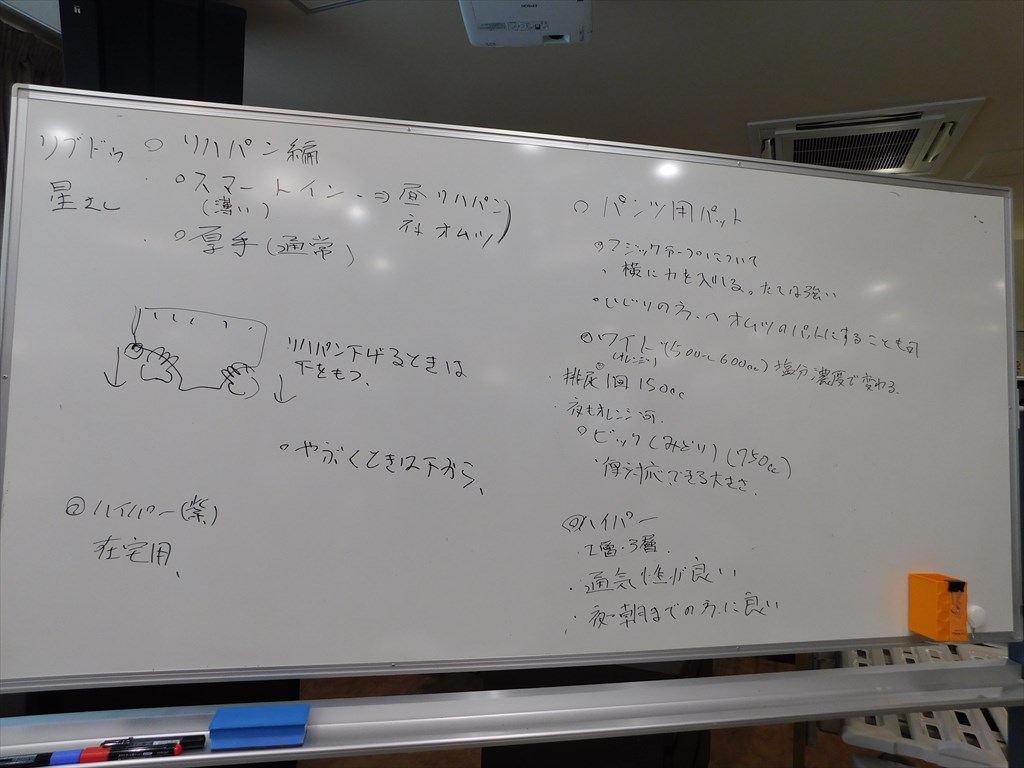 リブドゥ
星さん
○ リハパン編
○スマートイン ⇒ 昼 リハパン
(薄い)
夜 オムツ
○厚手(通常)
リハパン下げるときは
下をもつ、
○やぶくときは下から、
◎ハイパー(紫)
在宅用、
○ パンツ用パット
○マジックテープについて
、横に力を入れる。たては強い
○いじりの方、へオムツのパットにすることも可
◎ワイド(500〜600cc)塩分濃度で変わる。
(オレンジ)
・排尿1回150cc
夜もオレンジ可。
○ビック(みどり)(750cc)
・対応できる大きさ、
◎ハイパー
・2層・3層、
・通気性が良い
・夜〜朝までの方に良い